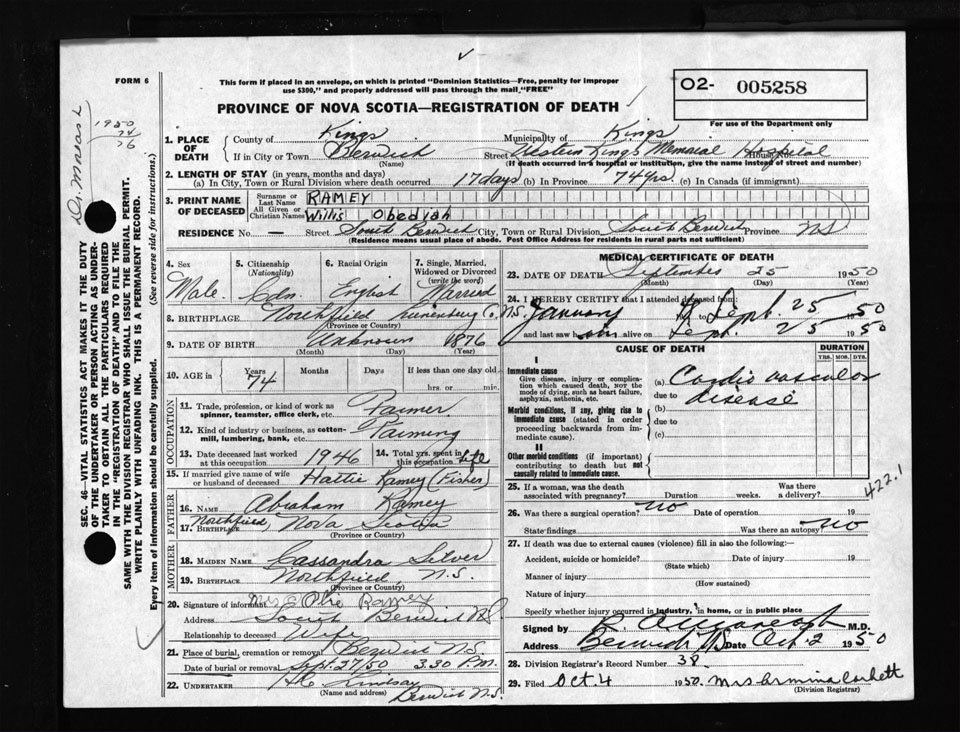 FORM 6
This form if placed in an envelope, on which is printed "Dominion Statistics—Free, penalty for improper
use $300," and properly addressed will pass through the mail "FREE"
O2- 005258
For use of the Department only
PROVINCE OF NOVA SCOTIA—REGISTRATION OF DEATH
1950
74
76
SEC. 46—VITAL STATISTICS ACT MAKES IT THE DUTY
OF THE UNDERTAKER OR PERSON ACTING AS UNDER-
TAKER TO OBTAIN ALL THE PARTICULARS REQUIRED
IN THE "REGISTRATION OF DEATH" AND TO FILE THE
SAME WITH THE DIVISION REGISTRAR WHO SHALL ISSUE THE BURIAL PERMIT.
WRITE PLAINLY WITH UNFADING INK. THIS IS A PERMANENT RECORD.
Every item of information should be carefully supplied. (See reverse side for instructions.)
1. PLACE OF DEATH
County of Kings Municipality of Kings
If in City or Town Berwick Street Western Kings Memorial Hospital House No.
(Name) (If death occurred in a hospital or institution, give the name instead of street and number)
2. LENGTH OF STAY (in years, months and days)
(a) In City, Town or Rural Division where death occurred 17 days (b) In Province 74 yrs (c) In Canada (if immigrant)
3. PRINT NAME OF DECEASED
Surname or Last Name RAMEY
All Given or Christian Names Willis Obediah
RESIDENCE No. — Street South Berwick City, Town or Rural Division South Berwick Province NS
(Residence means usual place of abode. Post Office Address for residents in rural parts not sufficient)
4. Sex
Male
5. Citizenship (Nationality)
Cdn.
6. Racial Origin
English
7. Single, Married, Widowed or Divorced (write the word)
Married
8. BIRTHPLACE Northfield Lunenburg Co. N.S.
(Province or Country)
9. DATE OF BIRTH Unknown 1876
(Month) (Day) (Year)
10. AGE in Years 74 Months Days If less than one day old
hrs. or min.
OCCUPATION
11. Trade, profession, or kind of work as spinner, teamster, office clerk, etc. Farmer
12. Kind of industry or business, as cotton-mill, lumbering, bank, etc. Farming
13. Date deceased last worked at this occupation 1946 14. Total yrs. spent in this occupation life
15. If married give name of wife or husband of deceased Hattie Ramey (Fisher)
FATHER
16. NAME Abraham Ramey
17. BIRTHPLACE Northfield, Nova Scotia
(Province or Country)
MOTHER
18. MAIDEN NAME Cassandra Silver
19. BIRTHPLACE Northfield, N.S.
(Province or Country)
20. Signature of informant Mrs Ramey
Address South Berwick NS
Relationship to deceased Wife
21. Place of burial, cremation or removal Berwick N.S.
Date of burial or removal Sept. 27/50 3.30 P.M.
22. UNDERTAKER Lindsay
(Name and address) Berwick N.S.
MEDICAL CERTIFICATE OF DEATH
23. DATE OF DEATH September 25 1950
(Month) (Day) (Year)
24. I HEREBY CERTIFY that I attended deceased from:
January to Sept. 25 1950
and last saw him alive on Sept. 25 1950
CAUSE OF DEATH DURATION
YRS. MOS. DYS.
I
Immediate cause
Give disease, injury or complication which caused death, not the mode of dying, such as heart failure, asphyxia, asthenia, etc.
(a) Cardio vascular
due to disease
Morbid conditions, if any, giving rise to immediate cause (stated in order proceeding backwards from immediate cause).
(b)
due to
(c)
II
Other morbid conditions (if important) contributing to death but not causally related to immediate cause.
422.1
25. If a woman, was the death associated with pregnancy? Duration weeks. Was there a delivery?
26. Was there a surgical operation? no Date of operation 19
State findings Was there an autopsy? no
27. If death was due to external causes (violence) fill in also the following:
Accident, suicide or homicide? Date of injury 19
(State which)
Manner of injury
(How sustained)
Nature of injury
Specify whether injury occurred in industry, in home, or in public place
Signed by M.D.
Address Berwick NS Date Oct. 2 1950
28. Division Registrar's Record Number 38
29. Filed Oct. 4 1950. Mrs Armina Corbett
(Division Registrar)